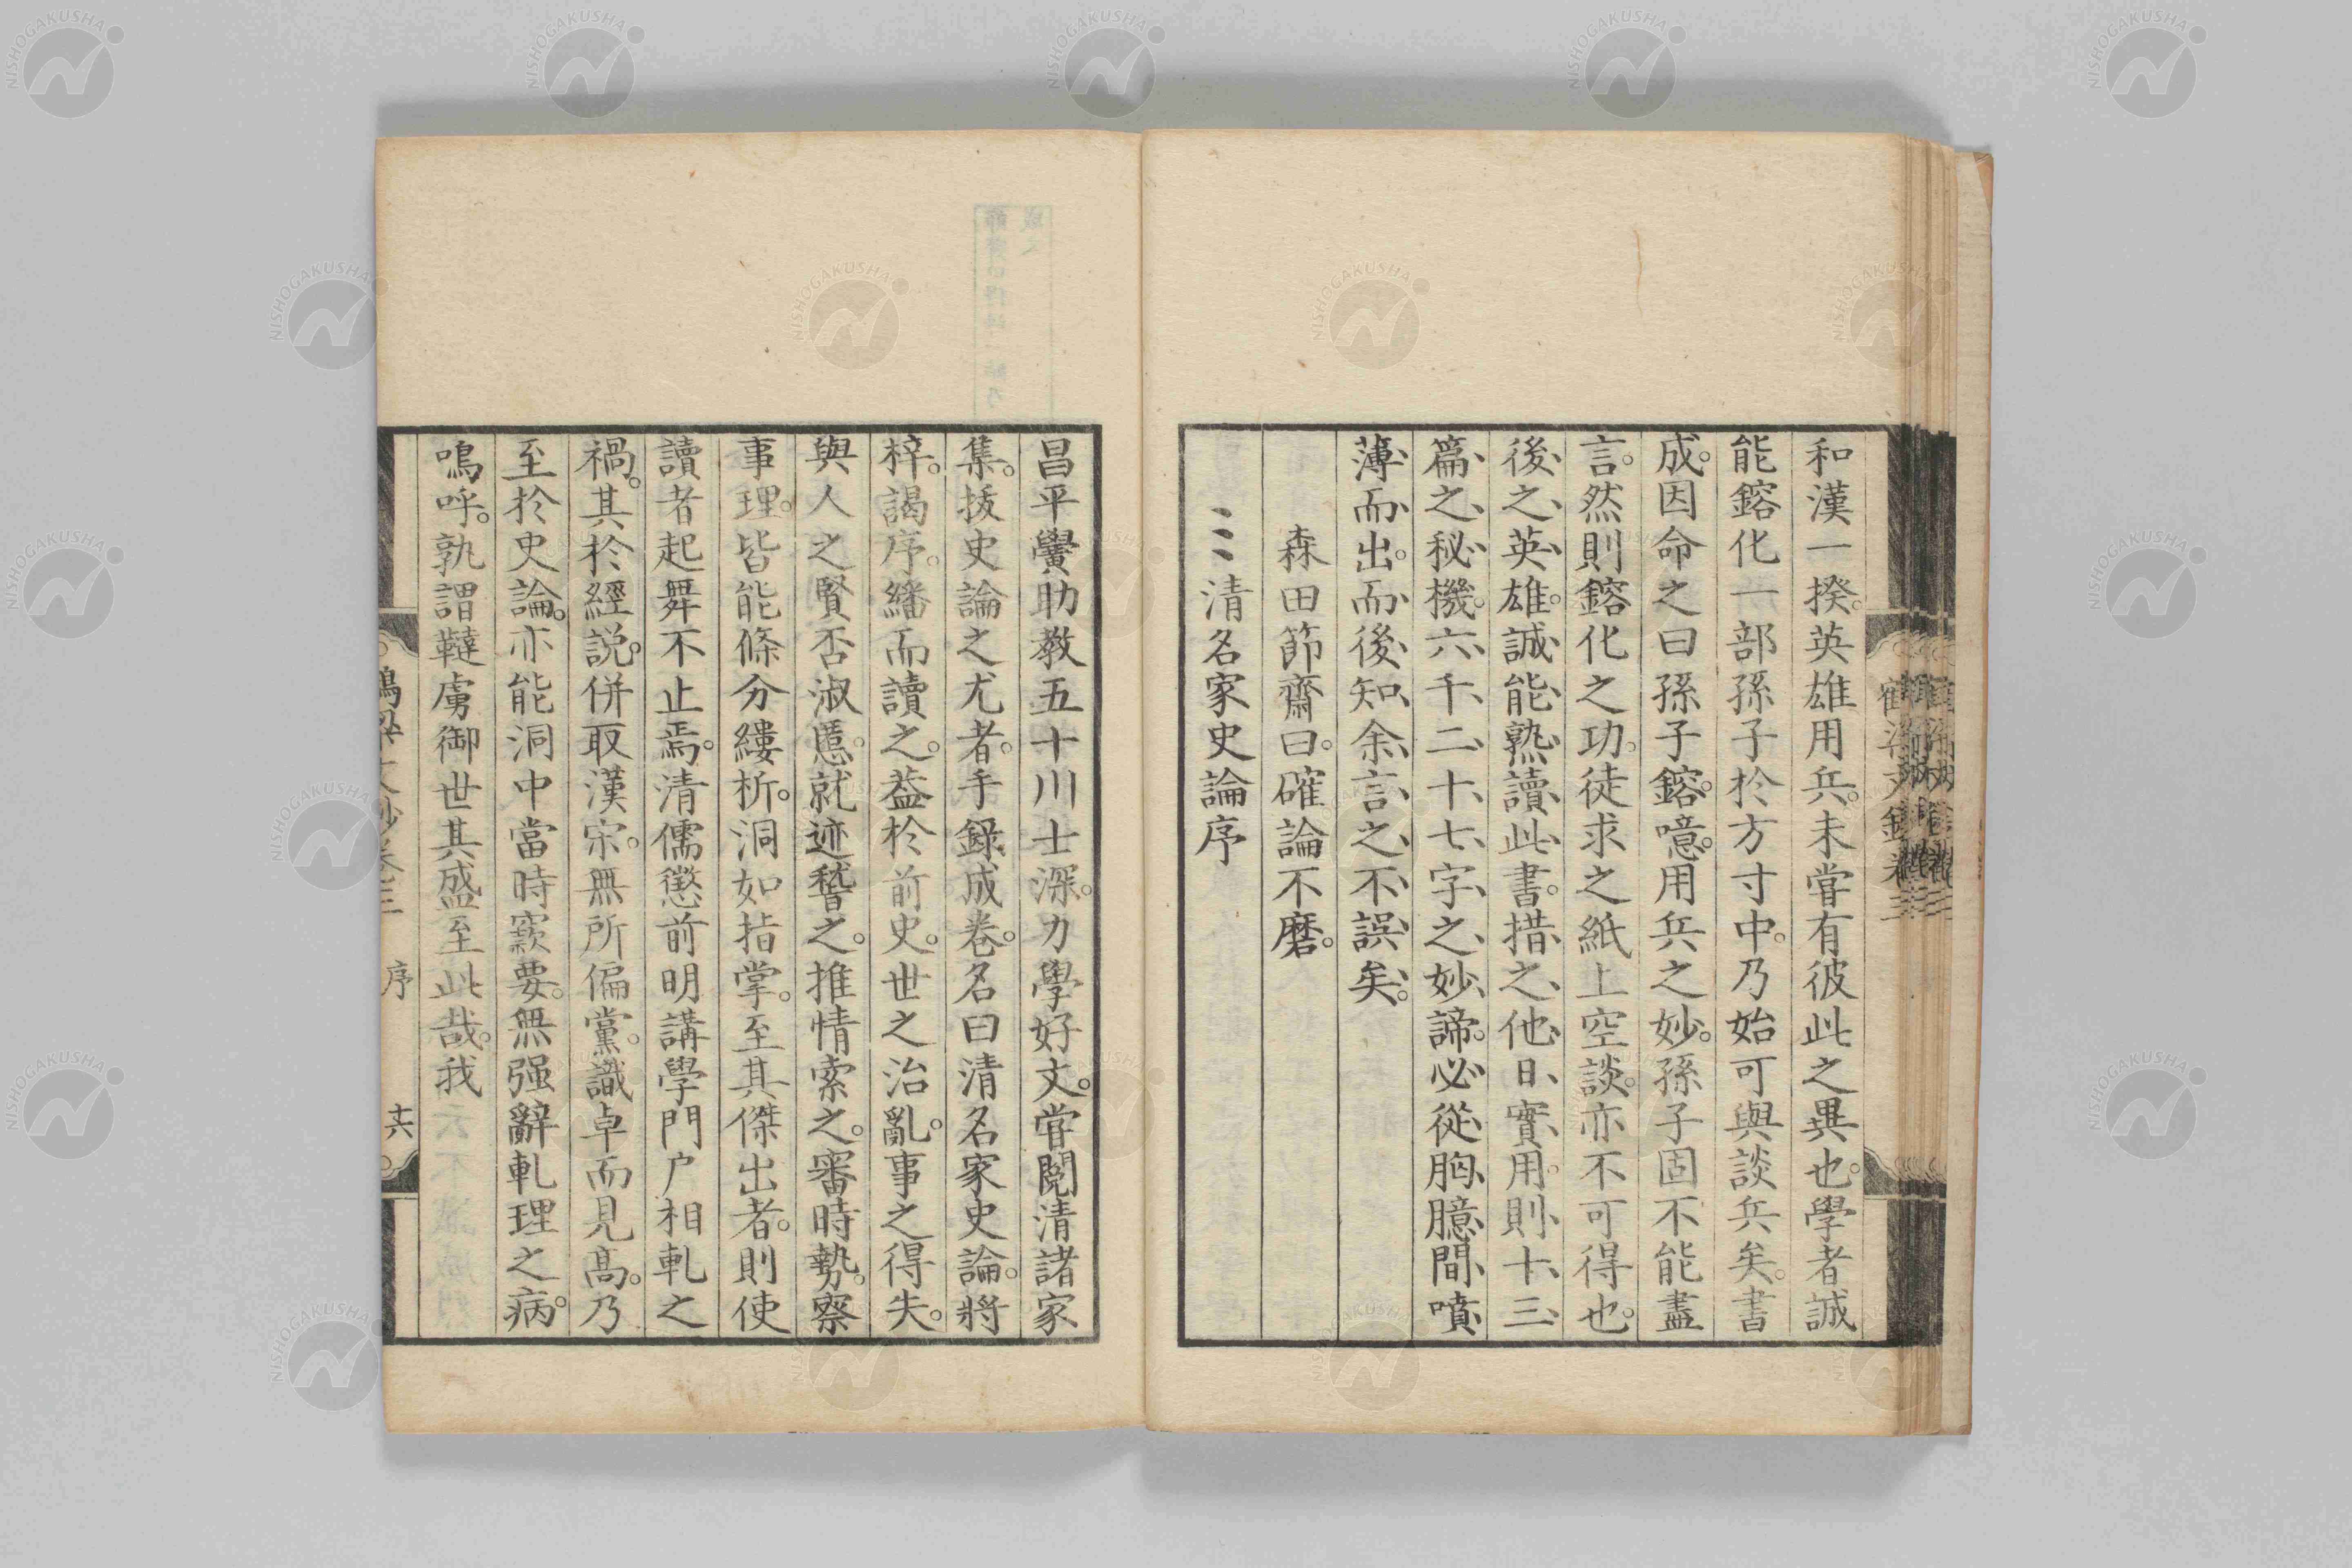 和漢一揆。英雄用兵。未嘗有彼此之異也。學者誠
能鎔化一部孫子於方寸中。乃始可與談兵矣。書
成。因命之曰孫子鎔。噫。用兵之妙。孫子固不能盡
言。然則鎔化之功。徒求之紙上空談。亦不可得也。
後之英雄。誠能熟讀此書。措之他日實用。則十三
篇之秘機。六千二十七字之妙諦。必從胸臆間噴
薄而出。而後知余言之不誤矣。
森田節齋曰。確論不磨。
清名家史論序
昌平黌助教五十川士深。力學好文。嘗閱清諸家
集。拔史論之尤者。手錄成卷。名曰清名家史論。將
梓。謁序。繙而讀之。葢於前史。世之治亂。事之得失。
與人之賢否淑慝。就迹稽之。推情索之。審時勢。察
事理。皆能條分縷析。洞如指掌。至其傑出者。則使
讀者起舞不止焉。清儒懲前明講學門户相軋之
禍。其於經說。併取漢宋。無所偏黨。識卓而見高。乃
至於史論。亦能洞中當時窾要。無强辭軋理之病。
嗚呼。孰謂韃虜御世其盛至此哉。我
序
十六
NISHOGAKUSHA